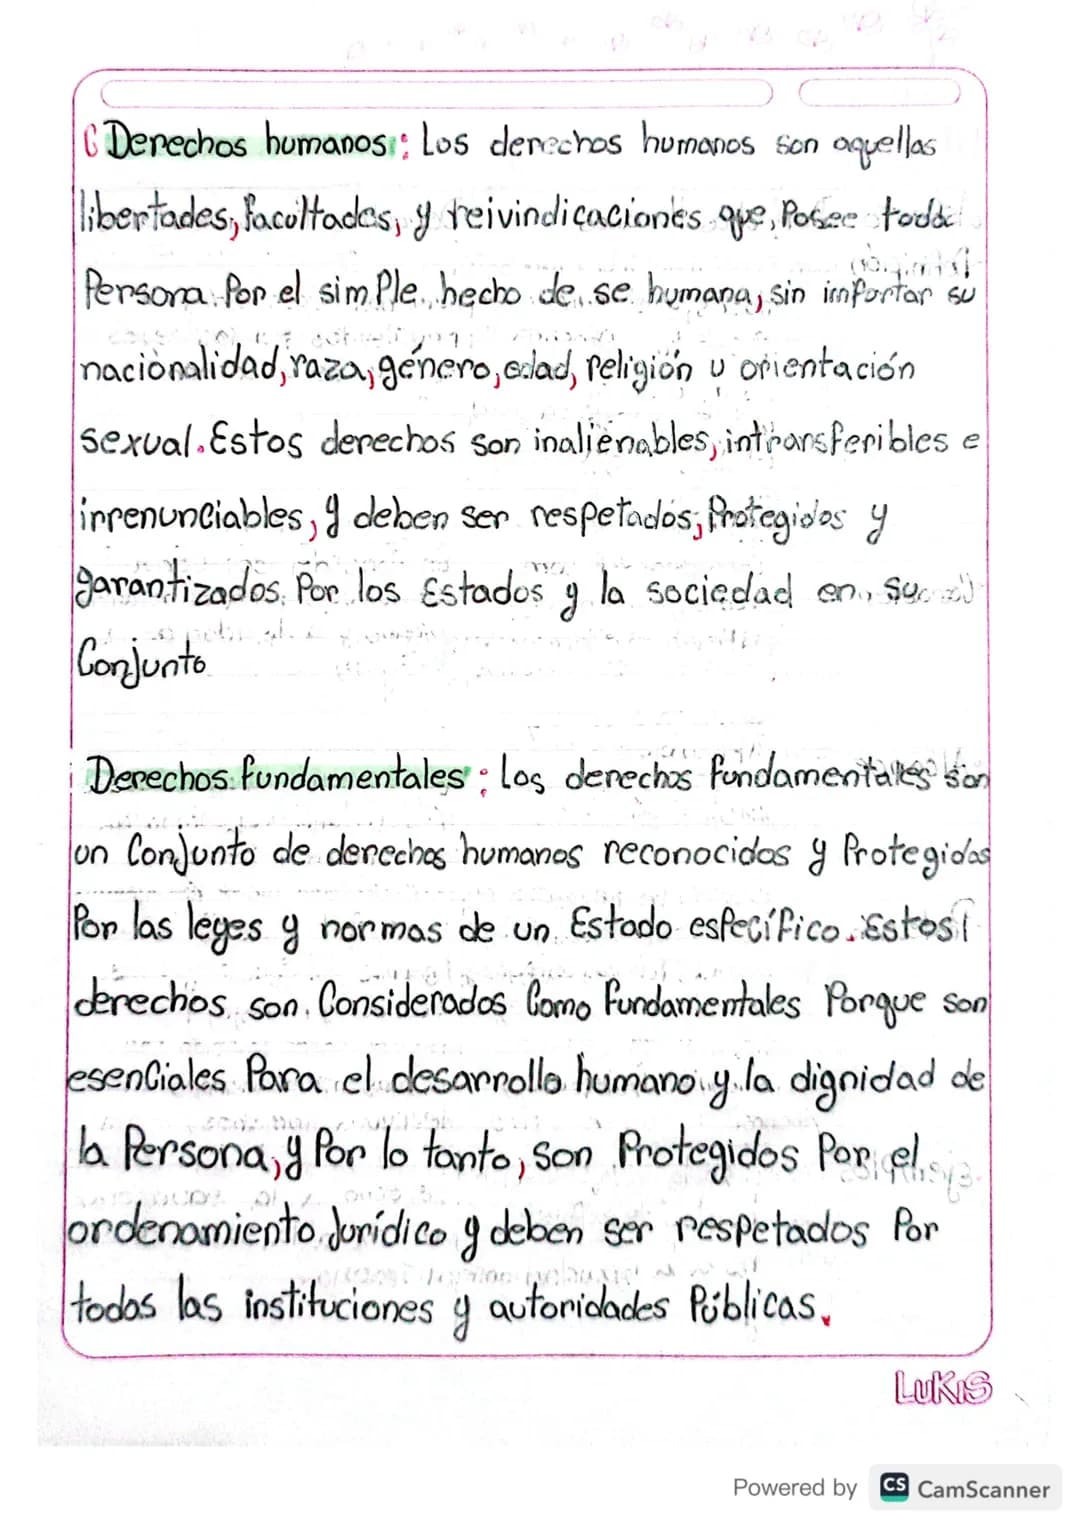 Derechos humanos: Los derechos humanos son aquellas
libertades, facultades, y reivindicaciones que Posee toda
Persona Por el simple hecho de se humana, sin importar su
nacionalidad, raza, género, edad, religión u orientación
sexual. Estos derechos son inalienables, intransferibles e
irrenunciables, y deben ser respetados, Protegidos y
garantizados Por los Estados y la sociedad en su
Conjunto
Derechos fundamentales: Los derechos fundamentales son
un Conjunto de derechos humanos reconocidos y Protegidos
Por las leyes y normas de un Estado específico. Estos
derechos son Considerados Como fundamentales Porque son
esenciales Para el desarrollo humano y la dignidad de
la Persona, y Por lo tanto, son Protegidos Por el
ordenamiento Jurídico y deben ser respetados Por
todas las instituciones y autoridades Públicas.
LUKIS
Powered by CS CamScanner